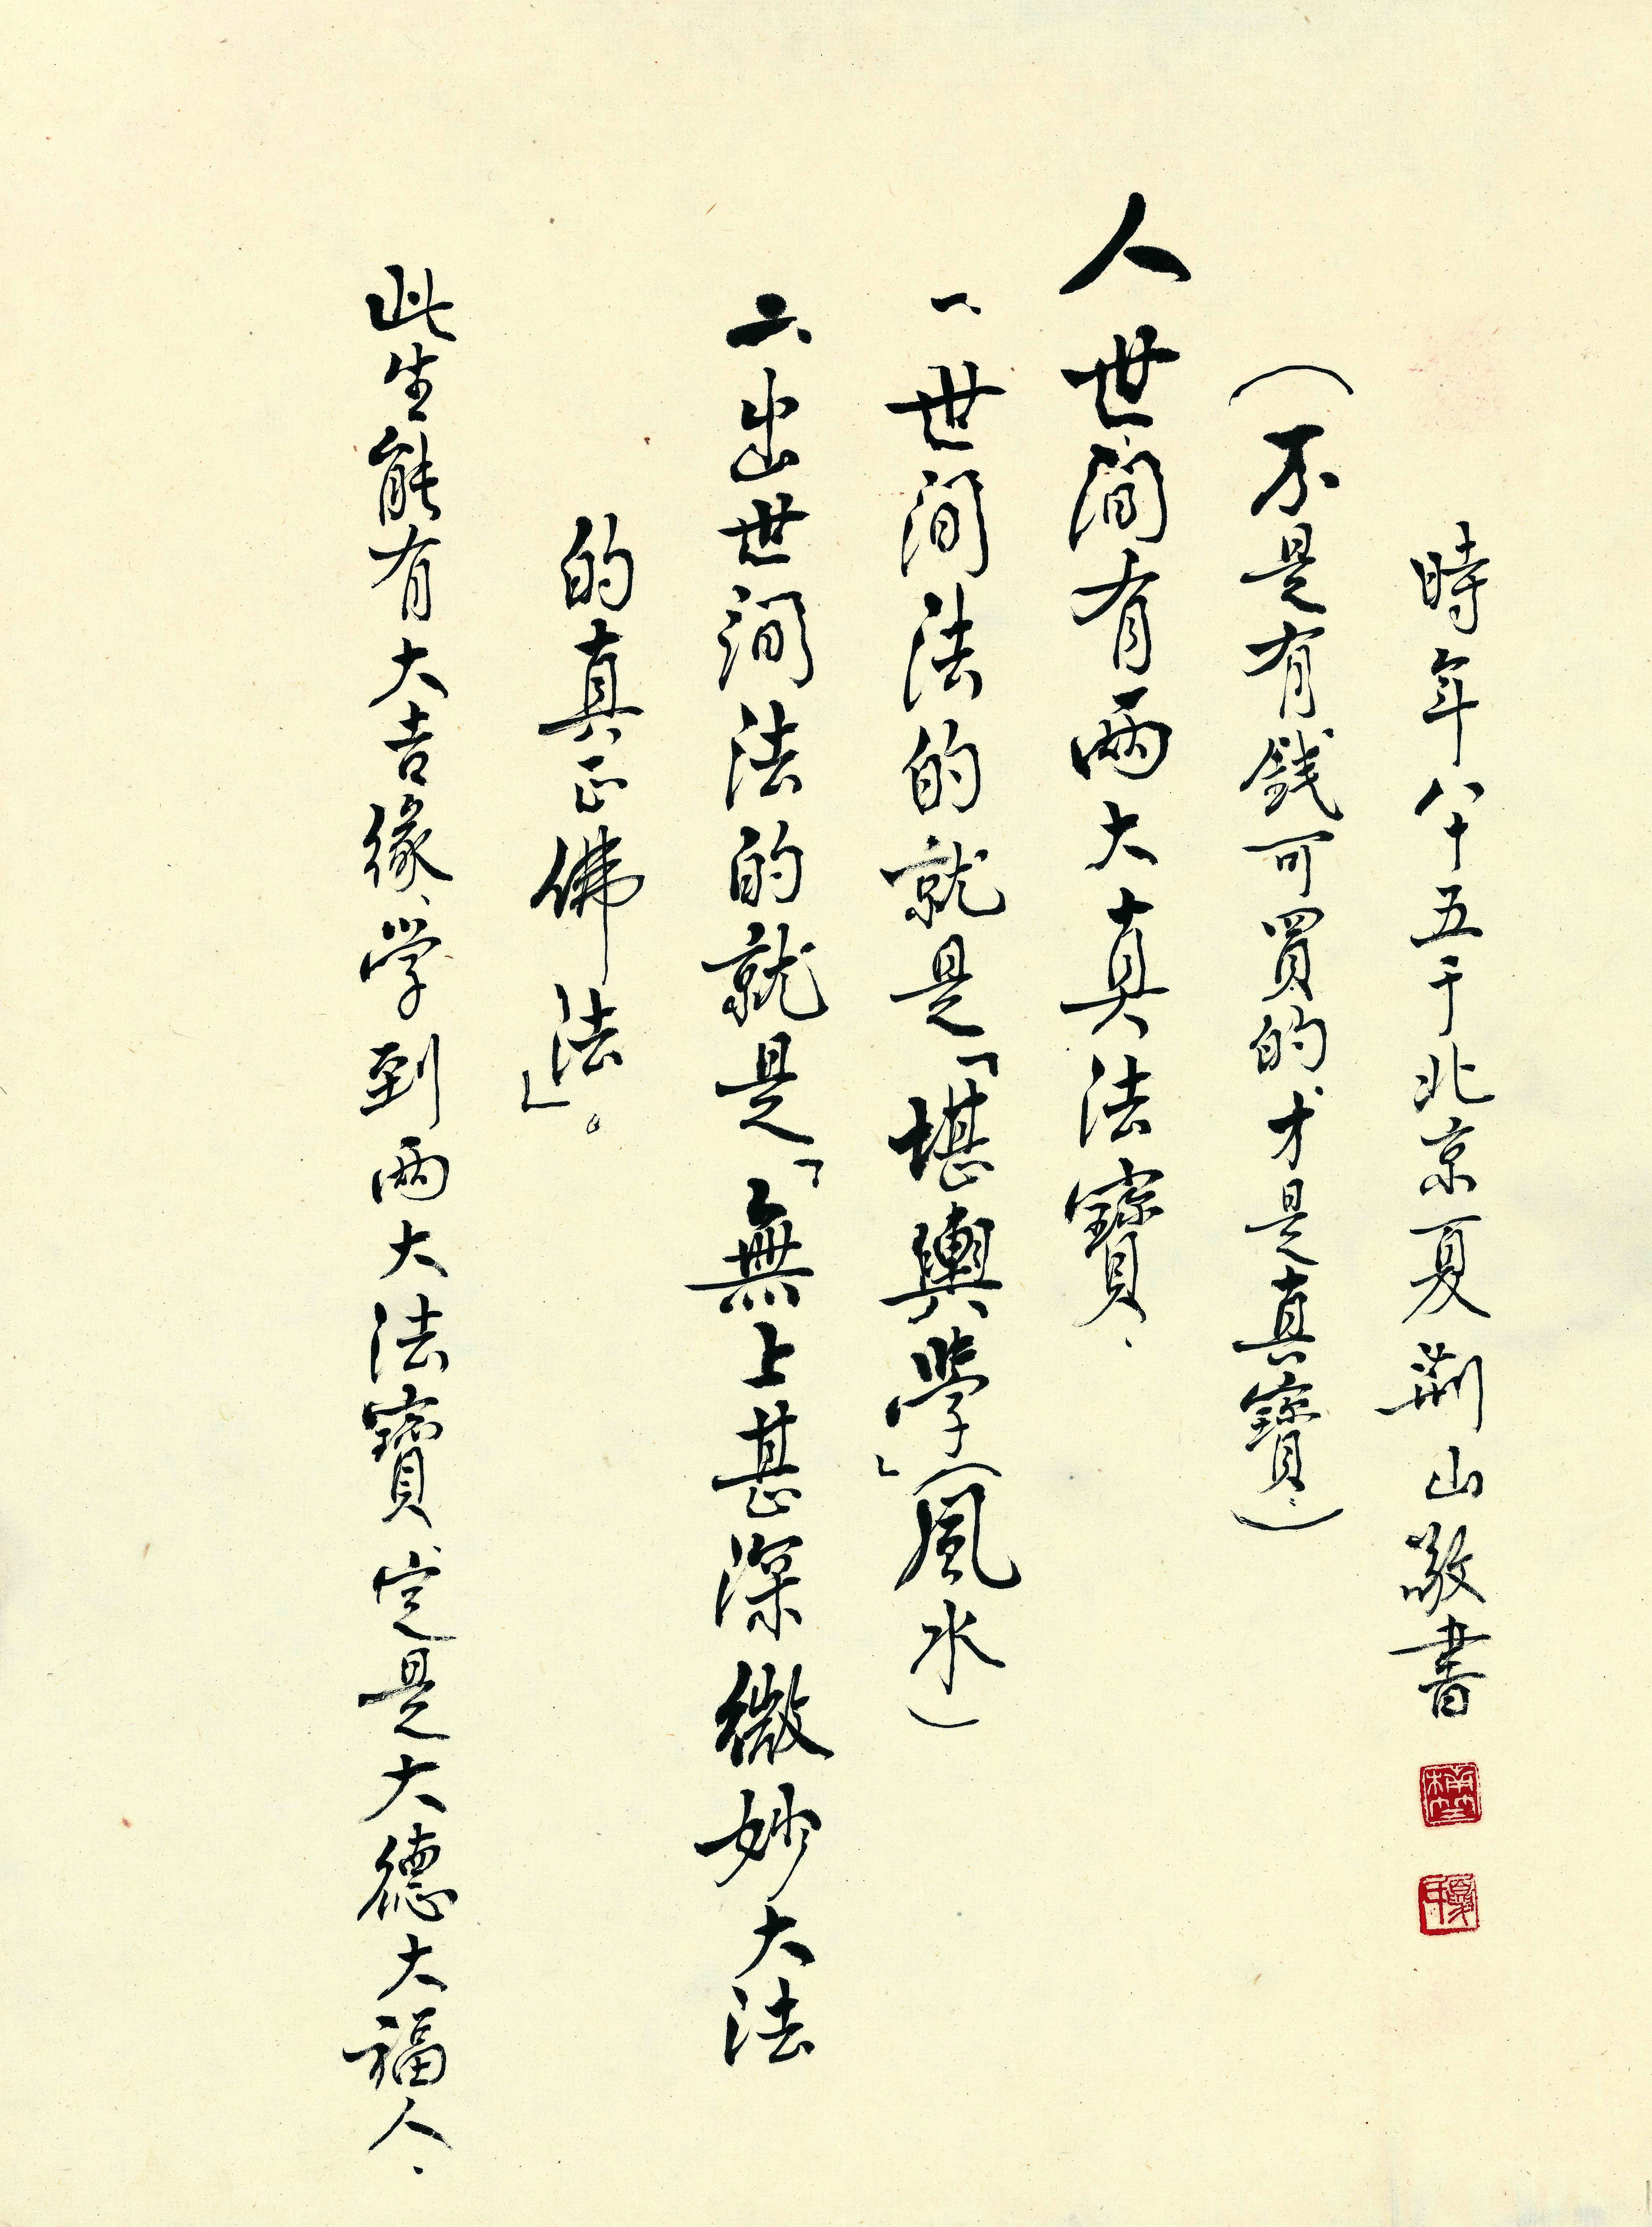 時年八十五于北京夏荆山敬書
（不是有錢可買的才是真寶．）
人世間有兩大真法寶．
一、世間法的就是「堪輿學」（風水）
二、出世間法的就是「無上甚深微妙大法
的真正佛法」。
此生能有大吉緣、学到兩大法寶定是大德大福人．